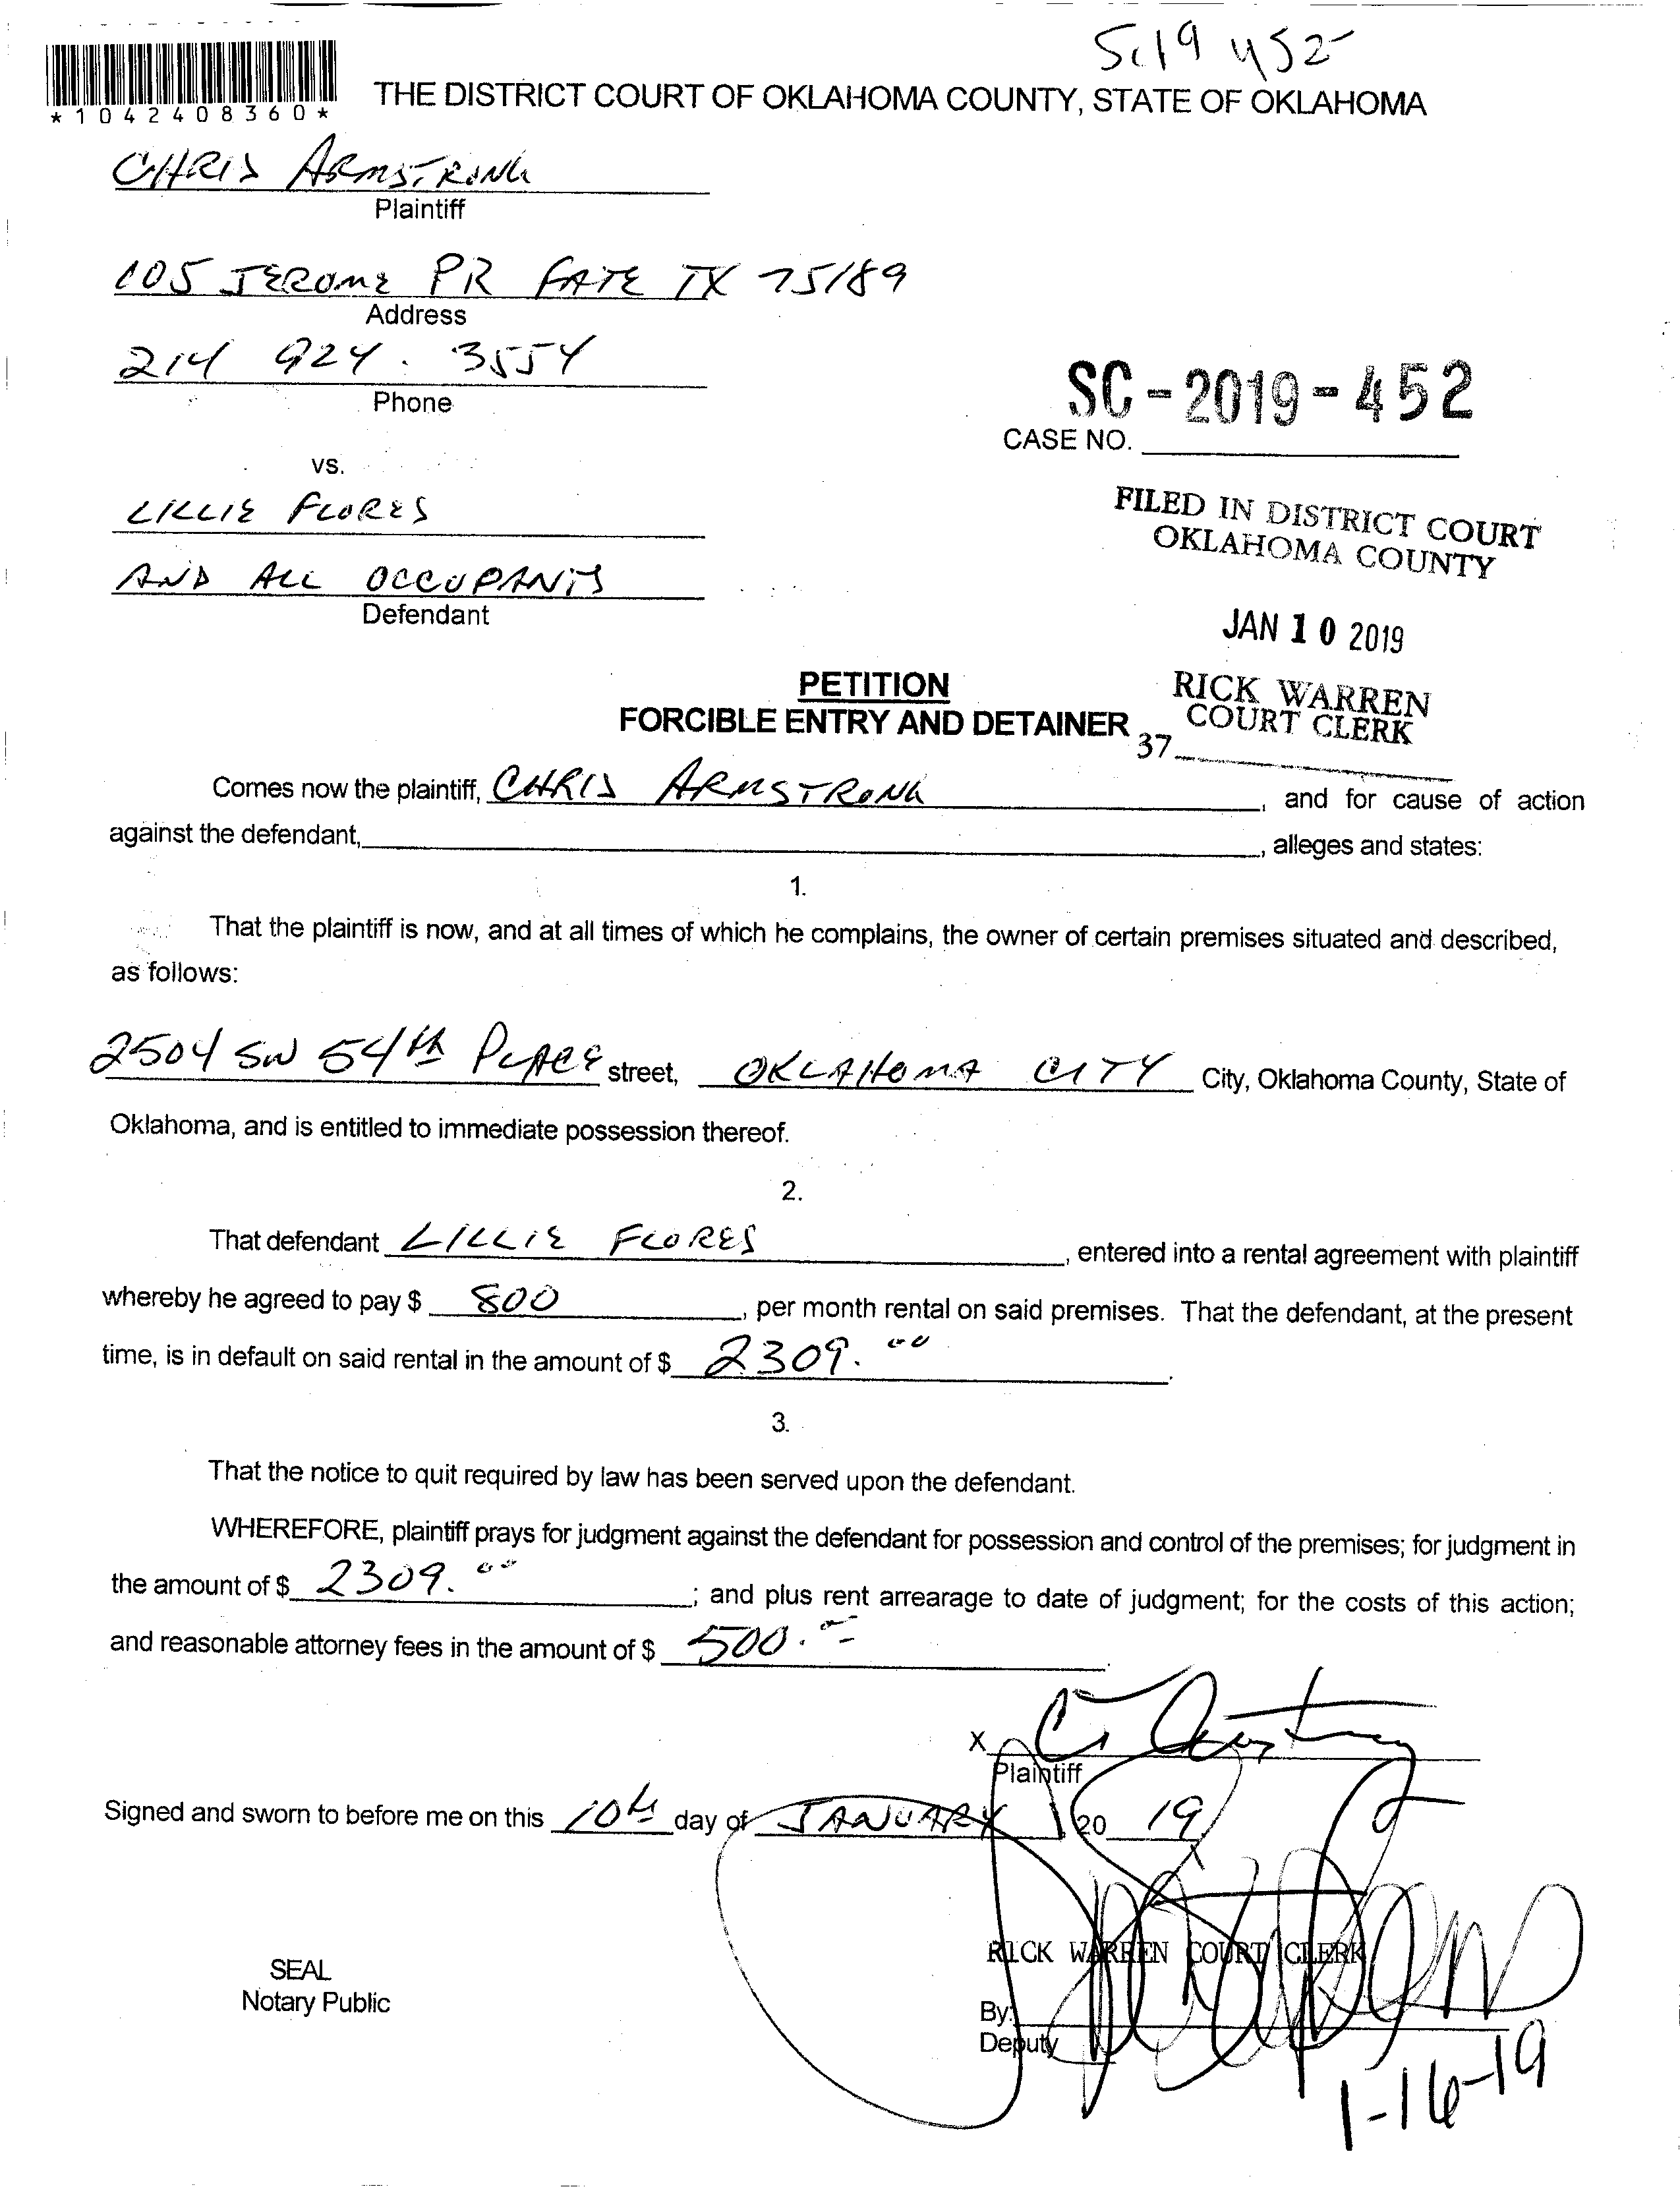 Sc19 452
*1042408360*
THE DISTRICT COURT OF OKLAHOMA COUNTY, STATE OF OKLAHOMA
CHRIS ARMSTRONG
Plaintiff
105 JEROME PR FATE TX 75189
Address
214 924. 3554
Phone
SC-2019-452
CASE NO.
vs.
LILLIE FLORES
FILED IN DISTRICT COURT
OKLAHOMA COUNTY
AND ALL OCCUPANTS
Defendant
JAN 10 2019
PETITION
RICK WARREN
FORCIBLE ENTRY AND DETAINER
COURT CLERK
37
Comes now the plaintiff, CHRIS ARMSTRONG, and for cause of action
against the defendant, , alleges and states:
1.
That the plaintiff is now, and at all times of which he complains, the owner of certain premises situated and described,
as follows:
2504 SW 54th PLACE street, OKLAHOMA CITY City, Oklahoma County, State of
Oklahoma, and is entitled to immediate possession thereof.
2.
That defendant LILLIE FLORES, entered into a rental agreement with plaintiff
whereby he agreed to pay $ 800, per month rental on said premises. That the defendant, at the present
time, is in default on said rental in the amount of $ 2309.00.
3.
That the notice to quit required by law has been served upon the defendant.
WHEREFORE, plaintiff prays for judgment against the defendant for possession and control of the premises; for judgment in
the amount of $ 2309.00; and plus rent arrearage to date of judgment; for the costs of this action;
and reasonable attorney fees in the amount of $ 500.
X
Plaintiff
Signed and sworn to before me on this 10th day of JANUARY, 20 19
RICK WARREN COURT CLERK
SEAL
Notary Public
By:
Deputy
1-16-19